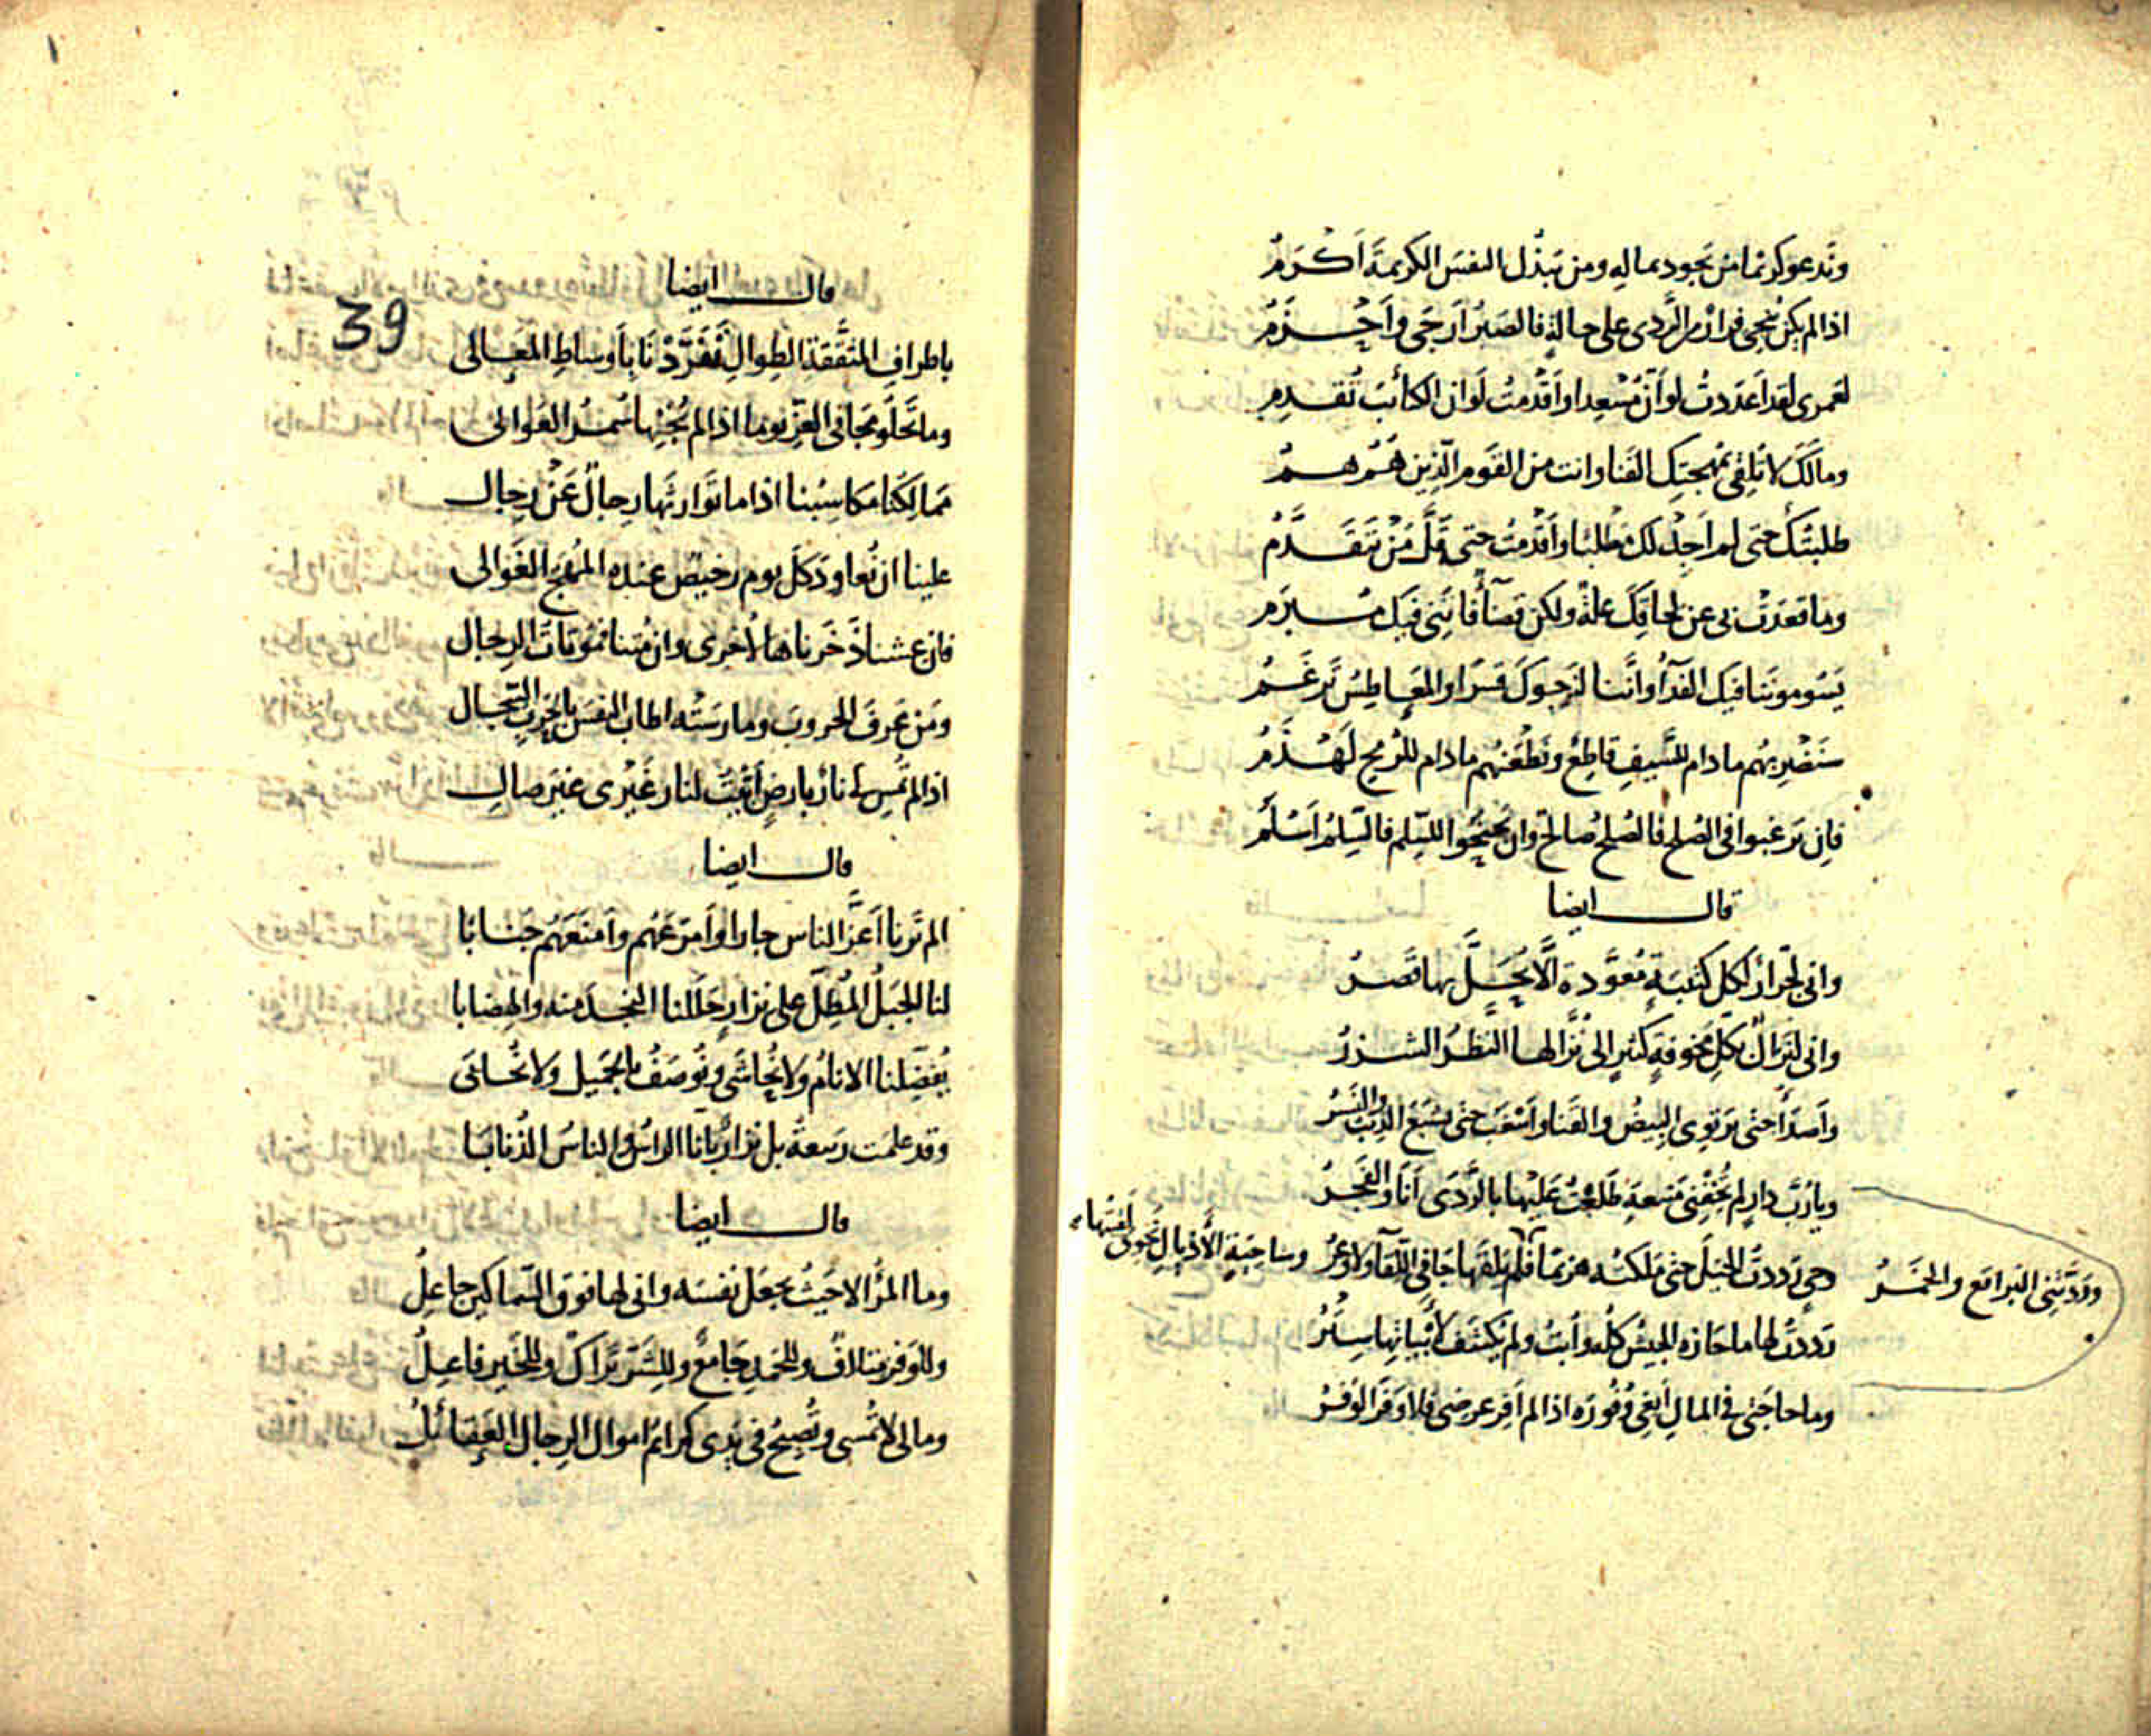 وتدعو كريما من يجود بماله ومن يبذل النفس الكريمة أكرم
اذا لم يكن ينجي فرار من الردى على حالة فالصبر أرجى وأحزم
لعمرى لقد اعذرت لو أن مسعدا وأقدمت لو ان الكتائب تقدم
ومالك لا تلقى بمهجتك القنا وانت من القوم الذين هم هم
طلبتك حتى لم أجد لك مطلبا وأقدمت حتى قل من يتقدم
وما قعدت بى عن لحاقك علة ولكن قضاء فاتنى فيك مبرم
يسوموننا فيك الفداء وإننا لنرجوك قسرا والمعاطس ترغم
سنضربهم ما دام للسيف قاطع ونطعنهم ما دام للرمح لهذم
فان ترغبوا فى الصلح فالصلح صالح وان تجنحوا للسلم فالسلم أسلم
قال ايضا
وانى لجرار لكل كتيبة معودة ألا يخل بها نصر
وانى لنزال بكل مخوفة كثير إلى نزالها النظر الشزر
وأصدأ حتى ترتوى البيض والقنا وأسغب حتى يشبع الذئب والنسر
ويا رب دار لم تخفنى منيعة طلعت عليها بالردى أنا والفجر
وحى رددت الخيل حتى ملكته هزيما وردتنى البراقع والخمر
وساحبة الأذيال نحوى لقيتها فلم يلقها جافى اللقاء ولا وعر
رددت لها ما حازه الجيش كله وأبت ولم يكشف لأبياتها ستر
وما حاجتى فى المال أبغى وفوره اذا لم أفر عرضى فلا وفر الوفر
39
قال ايضا
باطراف المثقفة الطوال تفردنا بأوساط المعالى
وما تحلو مجانى العز يوما اذا لم تجنها سمر العوالى
ممالكنا مكاسبنا اذا ما توارثها رجال عن رجال
علينا ان نعاود كل يوم رخيص عنده المهج الغوالى
فان عشنا ذخرناها لأخرى وان متنا فموتات الرجال
ومن عرف الحروب ومارسته اطاب النفس بالحرب السجال
اذا لم تمس لى نار بارض أبيت لنار غيرى غير صال
قال ايضا
الم ترنا أعز الناس جارا وأمرعهم وأمنعهم جنابا
لنا الجبل المطل على نزار حللنا النجد منه والهضابا
يفضلنا الانام ولا نحاشى ونوصف بالجميل ولا نحابى
وقد علمت ربيعة بل نزار بانا الراس والناس الذنابا
قال ايضا
وما المرء الا حيث يجعل نفسه وانى لها فوق السماكين جاعل
وللوفر متلاف وللحمد جامع وللشر تراك وللخير فاعل
ومالى لا تمسى وتصبح فى يدى كرائم اموال الرجال العقائل